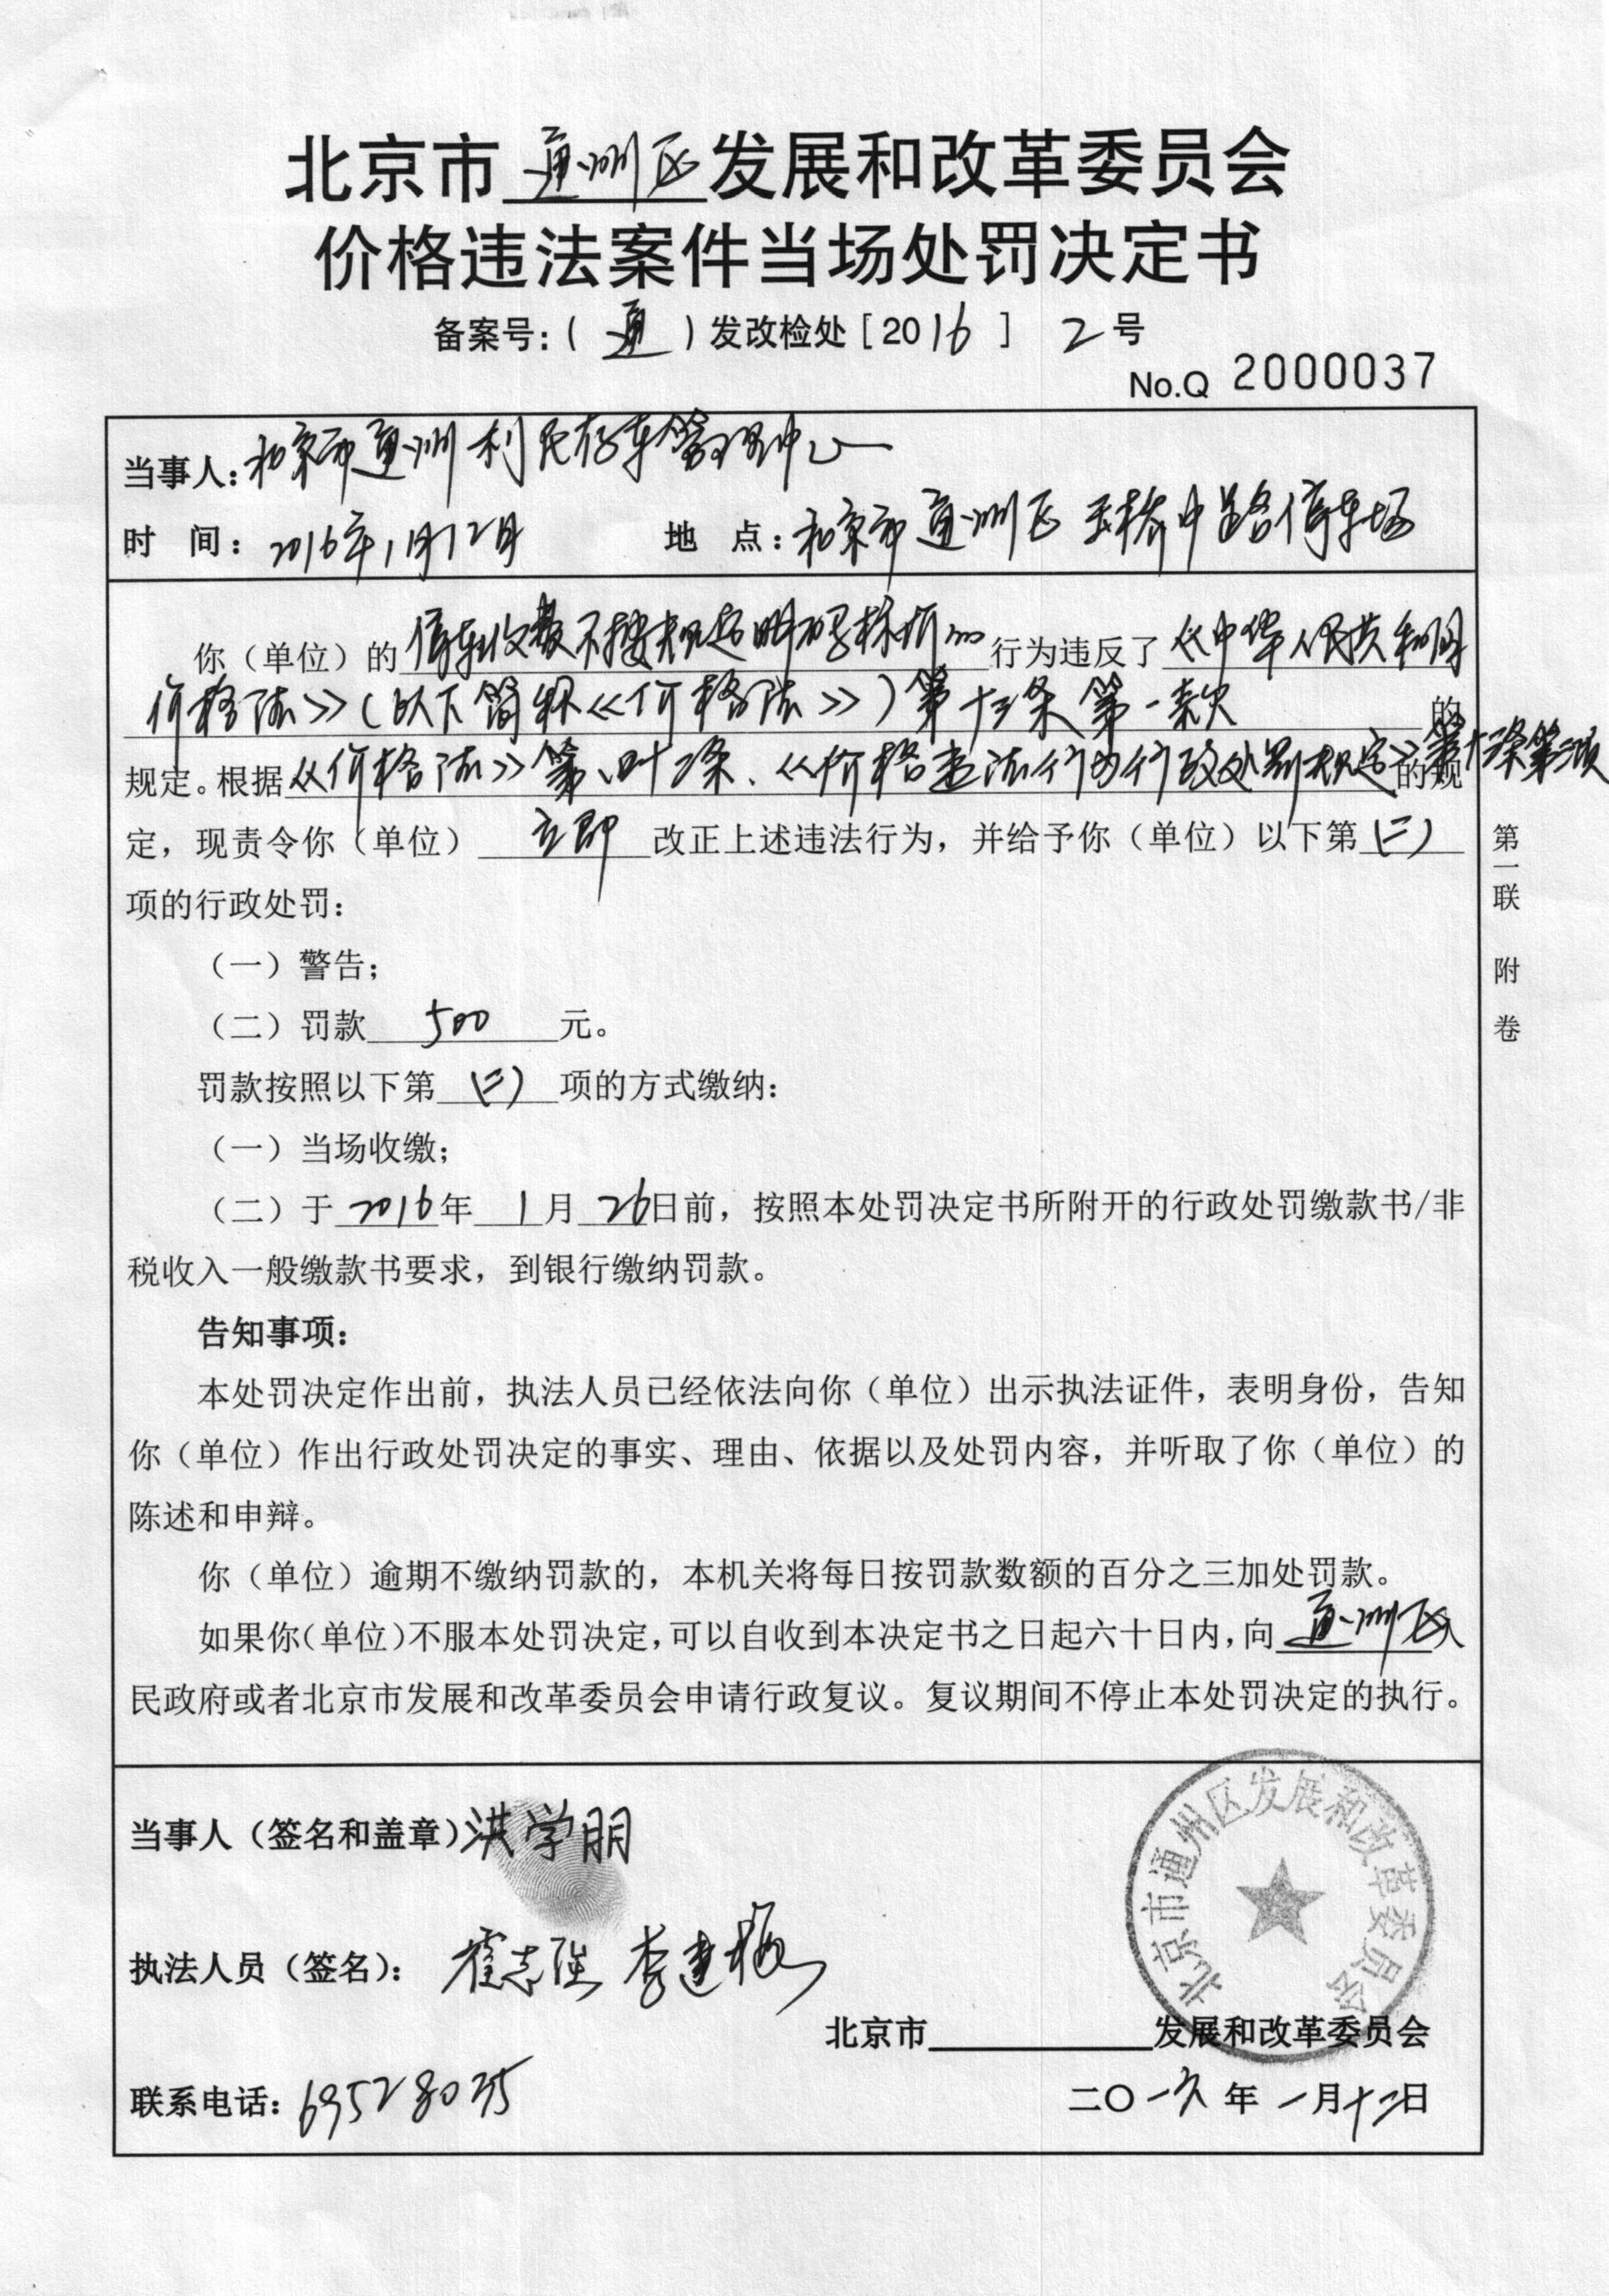 北京市通州区发展和改革委员会
价格违法案件当场处罚决定书
备案号:(通)发改检处[2016] 2号
No.Q 2000037
当事人:北京市通州利民存车管理中心
时 间:2016年1月12日 地 点:北京市通州区玉桥中路停车场
你(单位)的停车收费不按规定明码标价的行为违反了《中华人民共和国
价格法》(以下简称《价格法》)第十三条第一款的
规定。根据《价格法》第四十二条、《价格违法行为行政处罚规定》第十三条第二项的规
定,现责令你(单位)立即改正上述违法行为,并给予你(单位)以下第(二)
项的行政处罚:
(一)警告;
(二)罚款500元。
罚款按照以下第(二)项的方式缴纳:
(一)当场收缴;
(二)于2016年1月26日前,按照本处罚决定书所附开的行政处罚缴款书/非
税收入一般缴款书要求,到银行缴纳罚款。
告知事项:
本处罚决定作出前,执法人员已经依法向你(单位)出示执法证件,表明身份,告知
你(单位)作出行政处罚决定的事实、理由、依据以及处罚内容,并听取了你(单位)的
陈述和申辩。
你(单位)逾期不缴纳罚款的,本机关将每日按罚款数额的百分之三加处罚款。
如果你(单位)不服本处罚决定,可以自收到本决定书之日起六十日内,向通州区人
民政府或者北京市发展和改革委员会申请行政复议。复议期间不停止本处罚决定的执行。
第一联 附卷
当事人(签名和盖章)洪学朋
执法人员(签名):霍志强 李建梅
北京市通州区发展和改革委员会
北京市 发展和改革委员会
联系电话:69528035
二〇一六年一月十二日